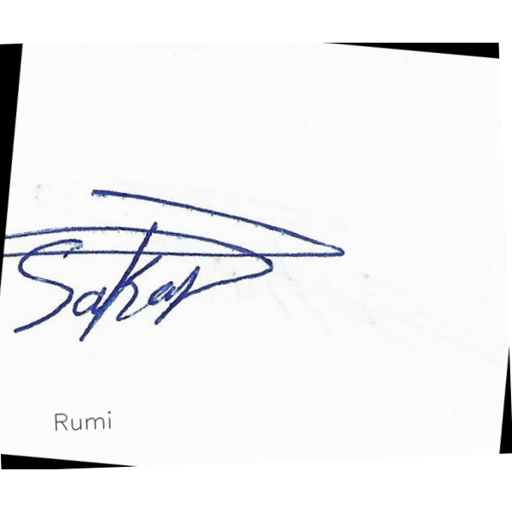 Sakar
Rumi